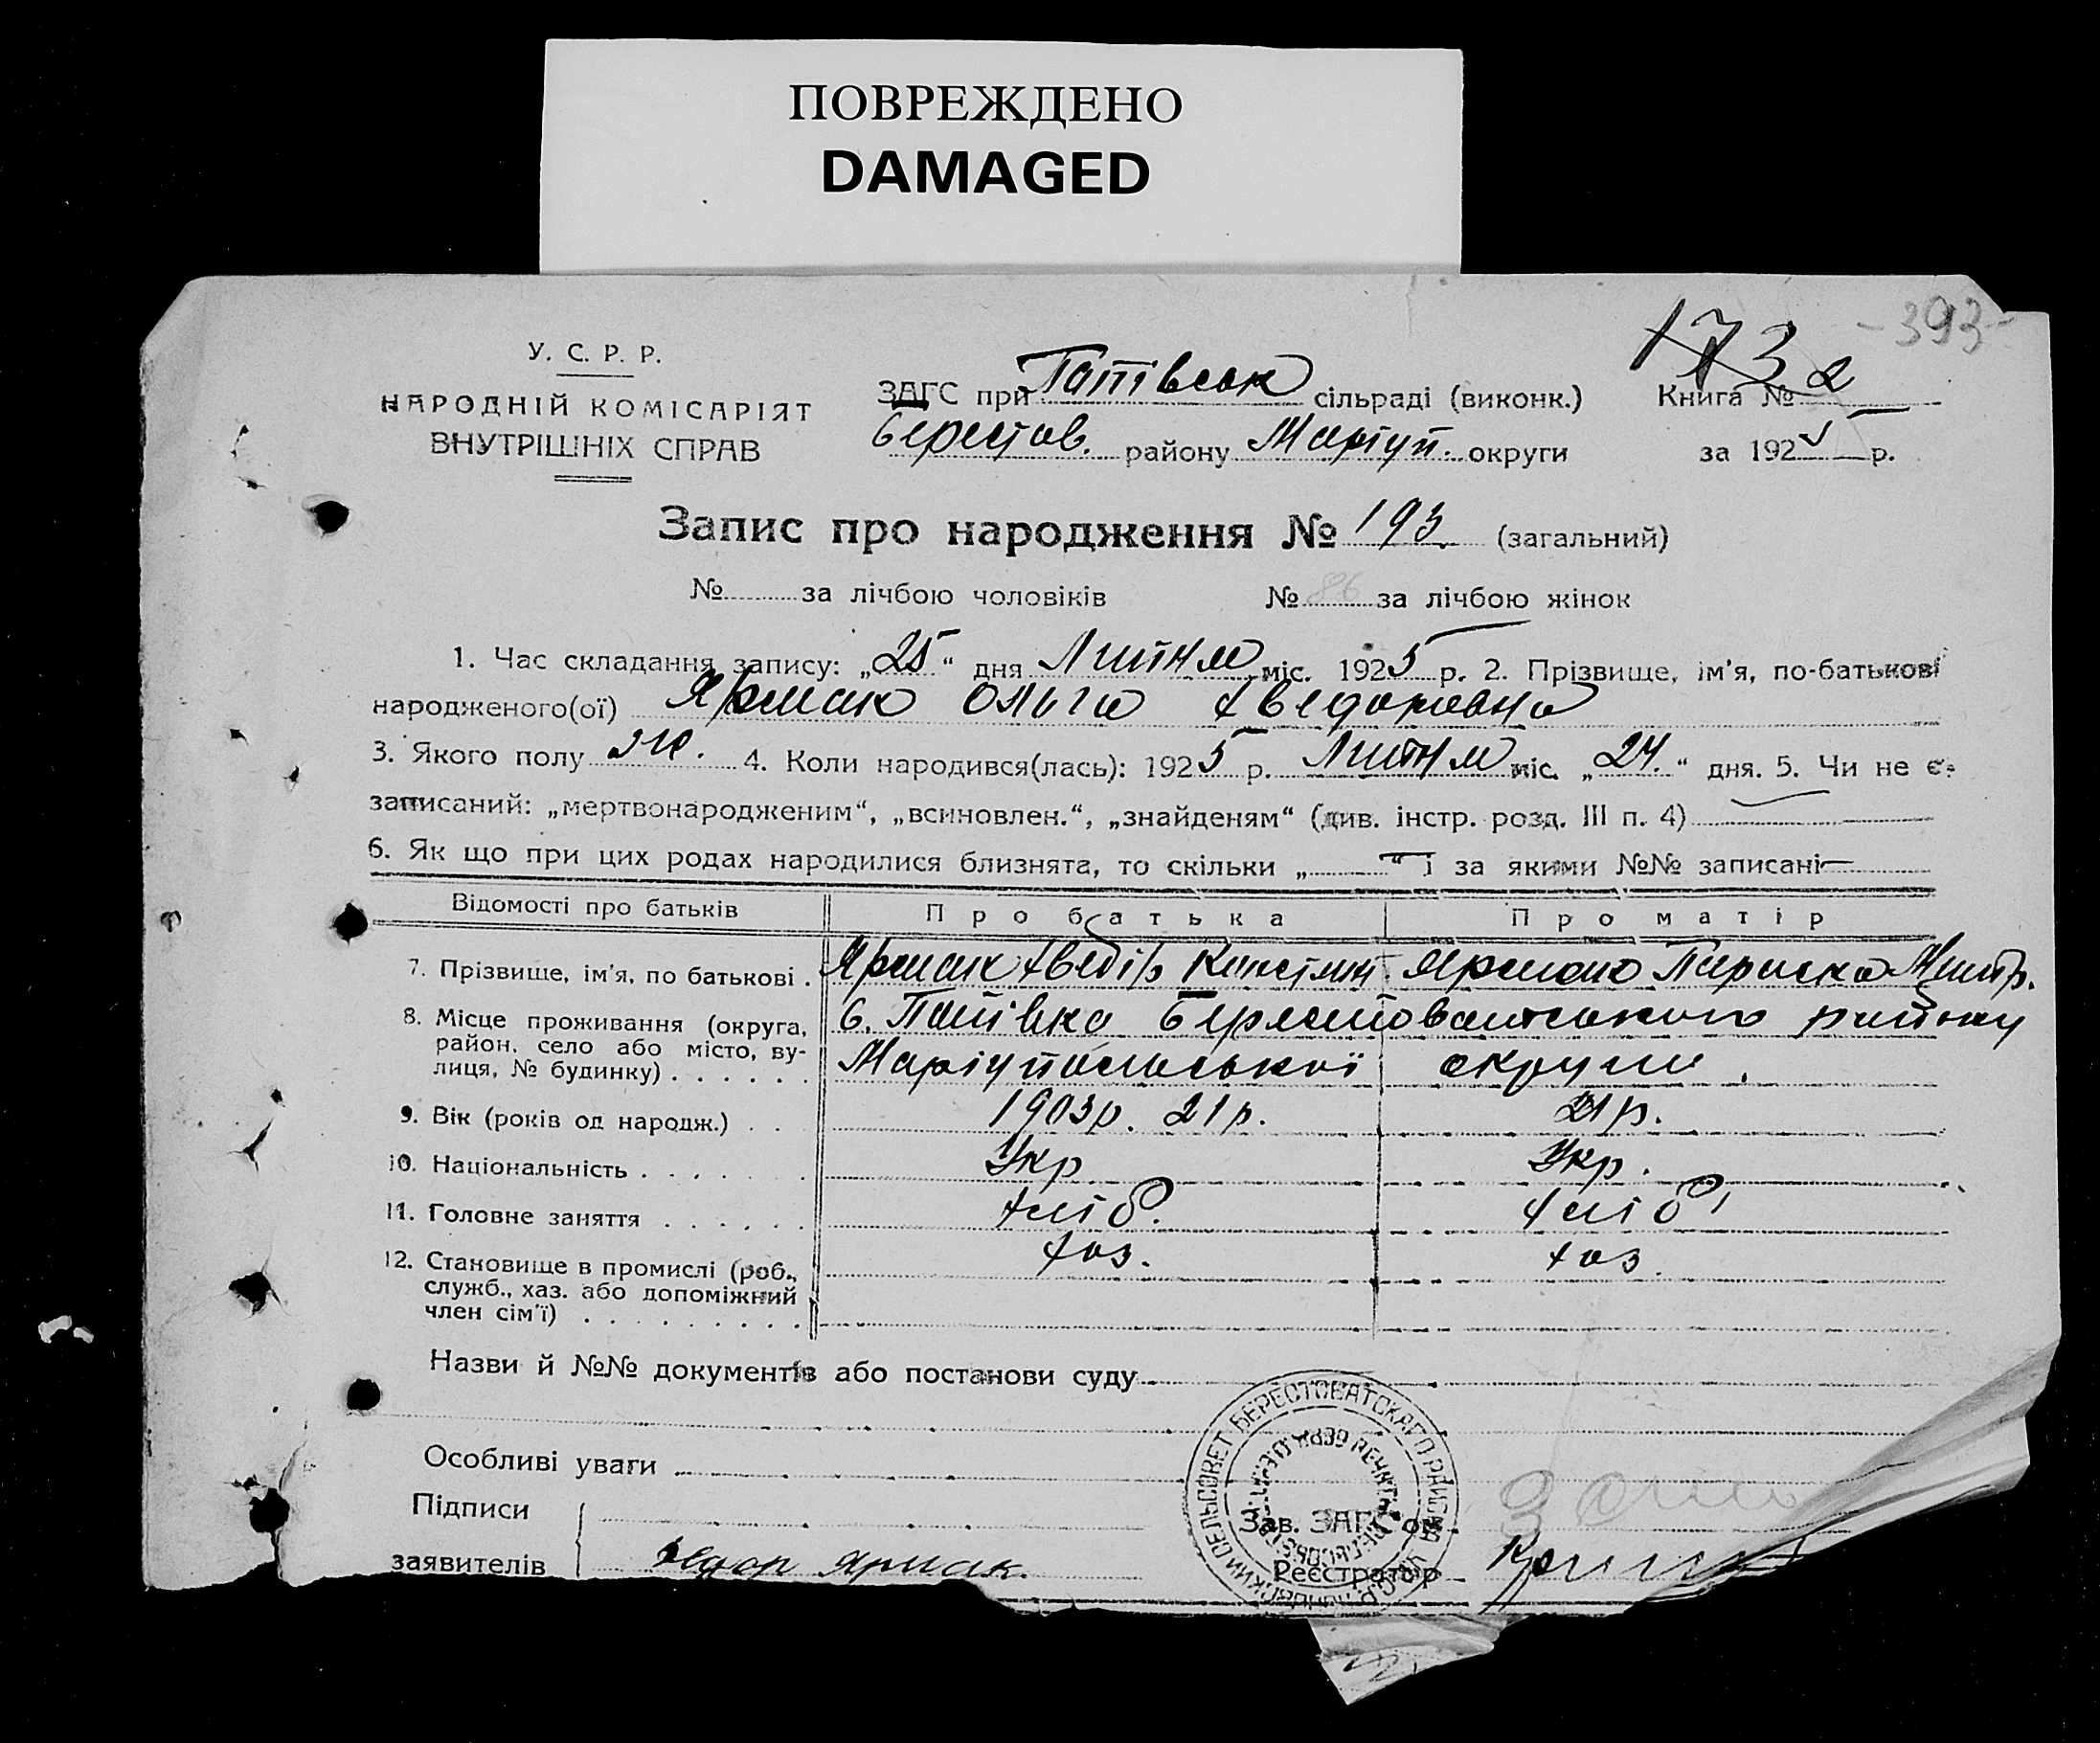 ПОВРЕЖДЕНО
DAMAGED
-393-
173
У. С. Р. Р.
НАРОДНІЙ КОМІСАРІЯТ
ВНУТРІШНІХ СПРАВ
ЗАГС при Попівськ сільраді (виконк.) Книга № 2
Берестов. району Маріуп. округи за 1925 р.
Запис про народження № 193. (загальний)
№ за лічбою чоловіків № 86 за лічбою жінок
1. Час складання запису: „25“ дня Липня міс. 1925 р. 2. Прізвище, ім'я, по-батькові
народженого(ої) Ярмак Ольга Хведоровна
3. Якого полу ж. 4. Коли народився(лась): 1925 р. Липня міс. „24.“ дня. 5. Чи не є
записаний: „мертвонародженим“, „всиновлен.“, „знайденям“ (див. інстр. розд. III п. 4)
6. Як що при цих родах народилися близнята, то скільки „ “ і за якими №№ записані
Відомості про батьків Про батька Про матір
7. Прізвище, ім'я, по батькові . Ярмак Хведір Констян. Ярмак Параска Дмитр.
8. Місце проживання (округа, с. Попівка Берестоватського району
район, село або місто, ву-
лиця, № будинку) . . . . . . Маріупольської округи.
9. Вік (років од народж.) . . 1903р. 21р. 21р.
10. Національність . . . . . . Укр Укр.
11. Головне заняття . . . . . . хліб. хліб.
12. Становище в промислі (роб., хаз. хаз.
служб., хаз. або допоміжний
член сім'ї) . . . . . . . . .
Назви й №№ документів або постанови суду
Особливі уваги
Підписи
Зав. ЗАГС'ом
заявителів Хедор Ярмак. Реєстратор
СЕЛЬСОВЕТ БЕРЕСТОВАТСКАГО РАЙОНА